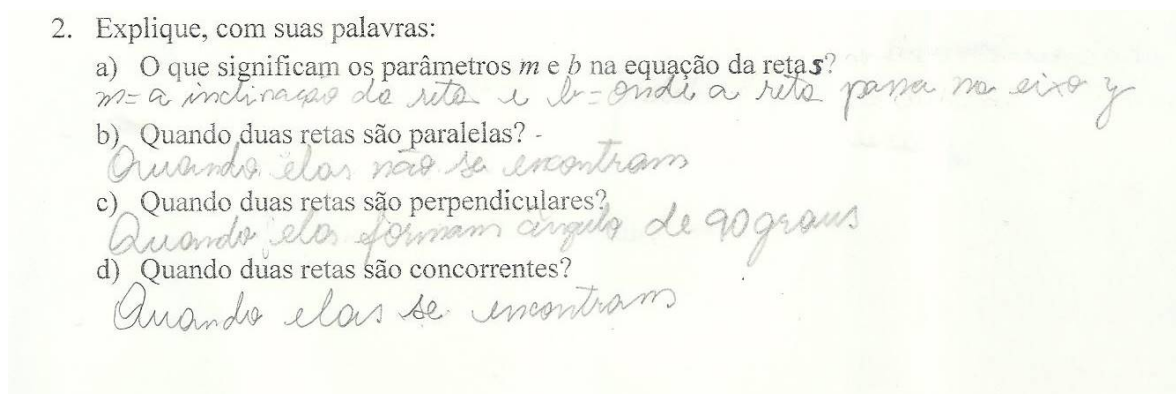 2. Explique, com suas palavras:
a) O que significam os parâmetros m e b na equação da reta s?
m= a inclinação da reta e b= onde a reta passa no eixo y
b) Quando duas retas são paralelas? -
Quando elas não se encontram
c) Quando duas retas são perpendiculares?
Quando elas formam ângulo de 90 graus
d) Quando duas retas são concorrentes?
Quando elas se encontram